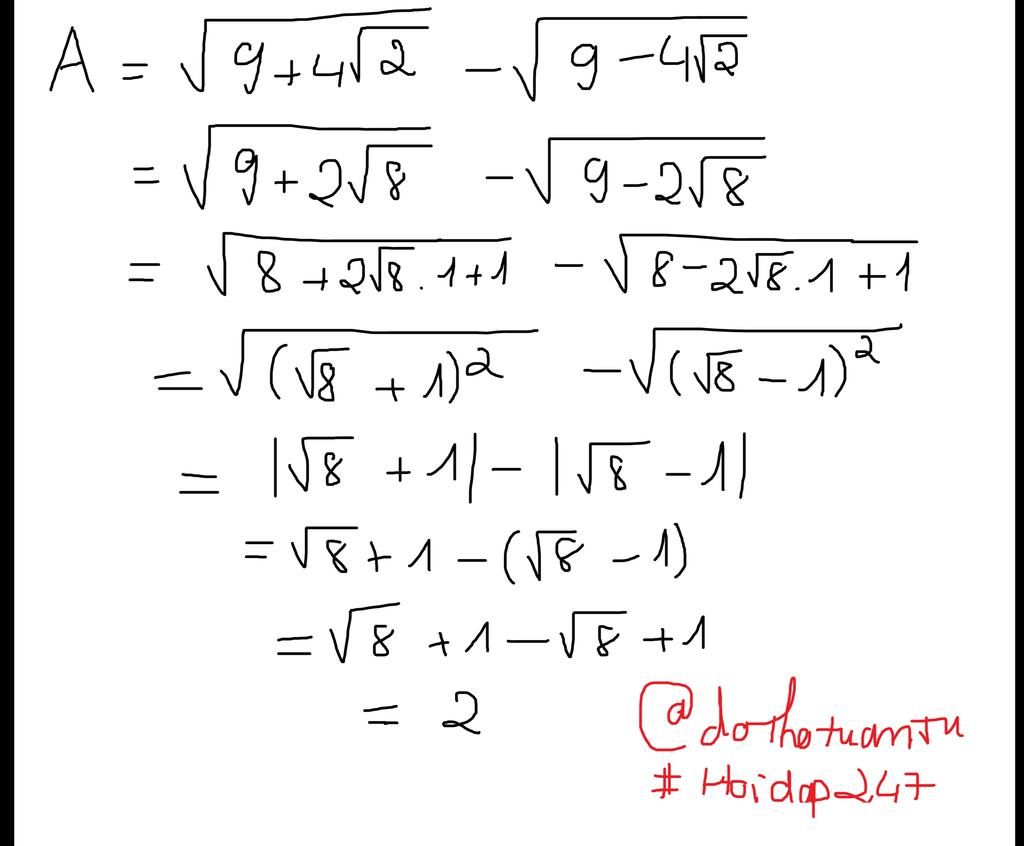 A = √(9+4√2) - √(9-4√2)
= √(9+2√8) - √(9-2√8)
= √(8+2√8.1+1) - √(8-2√8.1+1)
= √((√8+1)²) - √((√8-1)²)
= |√8+1| - |√8-1|
= √8+1-(√8-1)
= √8+1-√8+1
= 2
@dothetuantu
# Hoidap247